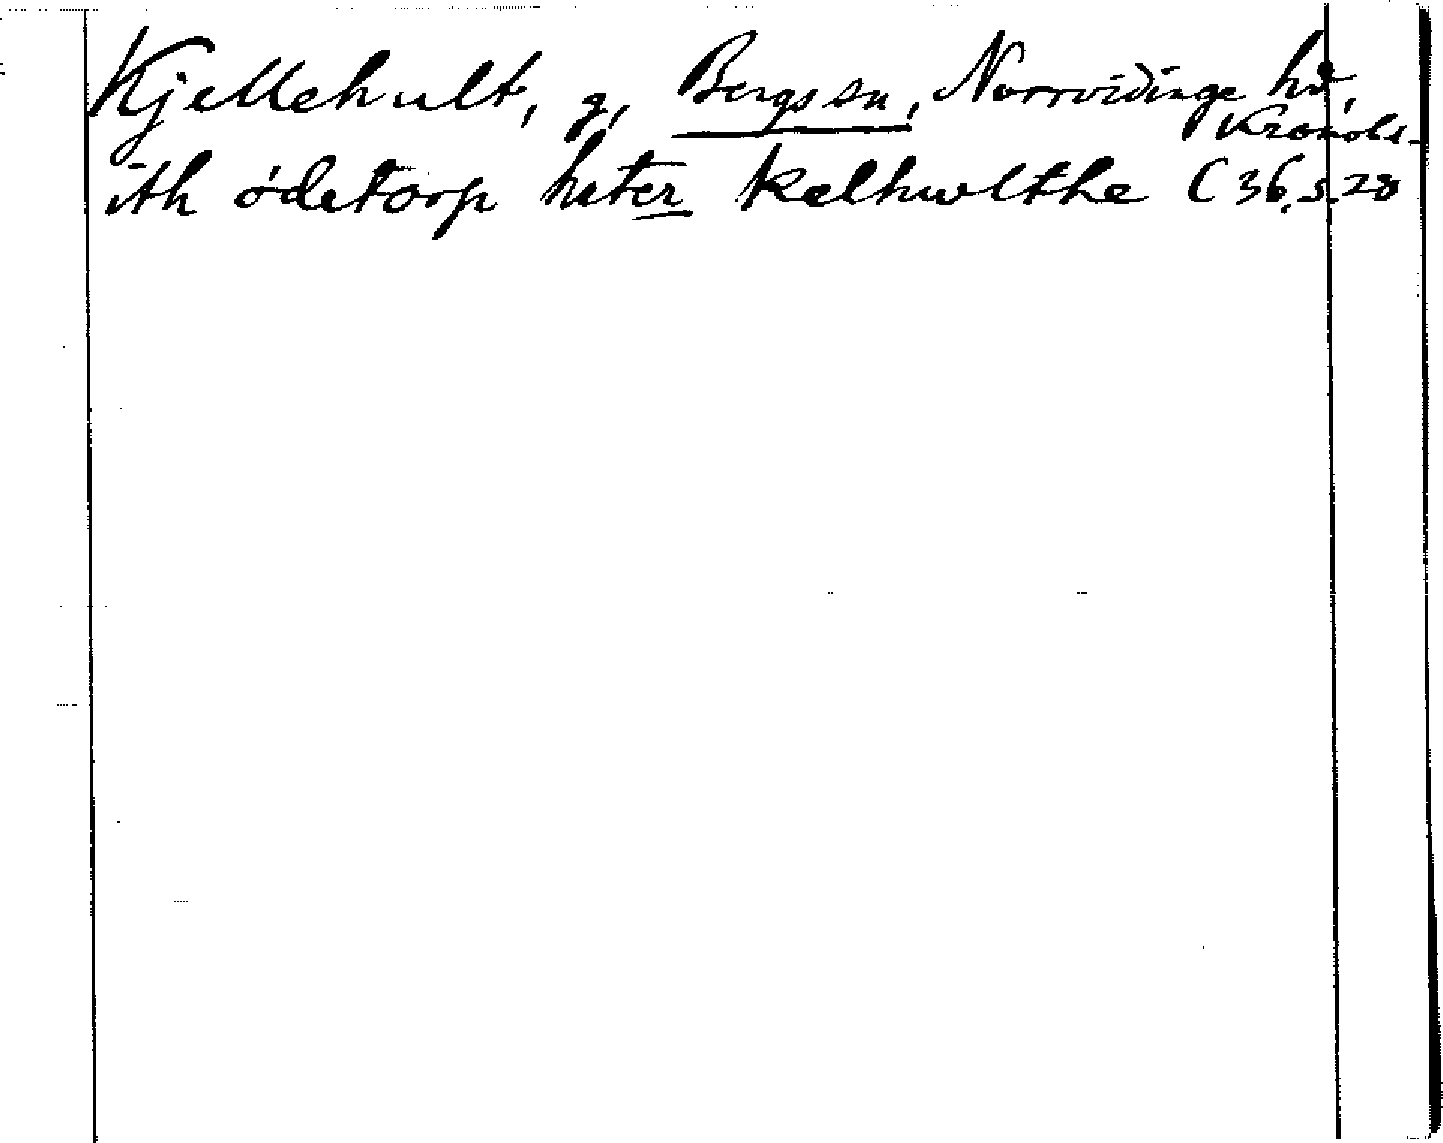 Kjellehult, g, Bergs sn, Norrvidinge hd,
Kronobs.
ith ödetorp heter Kelhwlthe C 36, s. 28